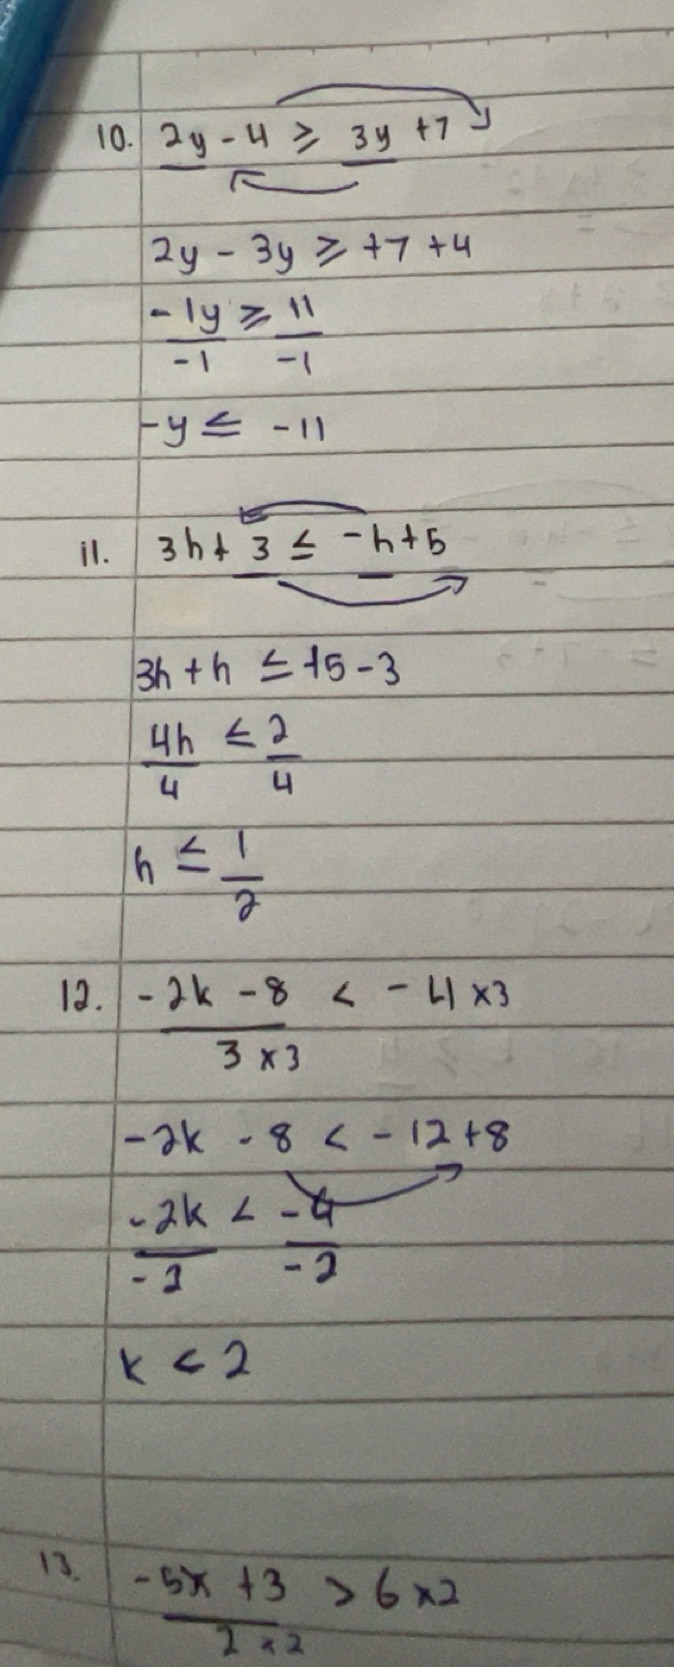 10. 2y - 4 ≥ 3y + 7
2y - 3y ≥ +7 +4
-1y ≥ 11
-1 -1
-y ≤ -11
11. 3h + 3 ≤ -h + 5
3h + h ≤ +5 - 3
4h ≤ 2
4 4
h ≤ 1
2
12. -2k - 8 < -4 ×3
3 ×3
-2k - 8 < -12 +8
-2k < -4
-2 -2
k < 2
13. -5x + 3 > 6 ×2
2 ×2